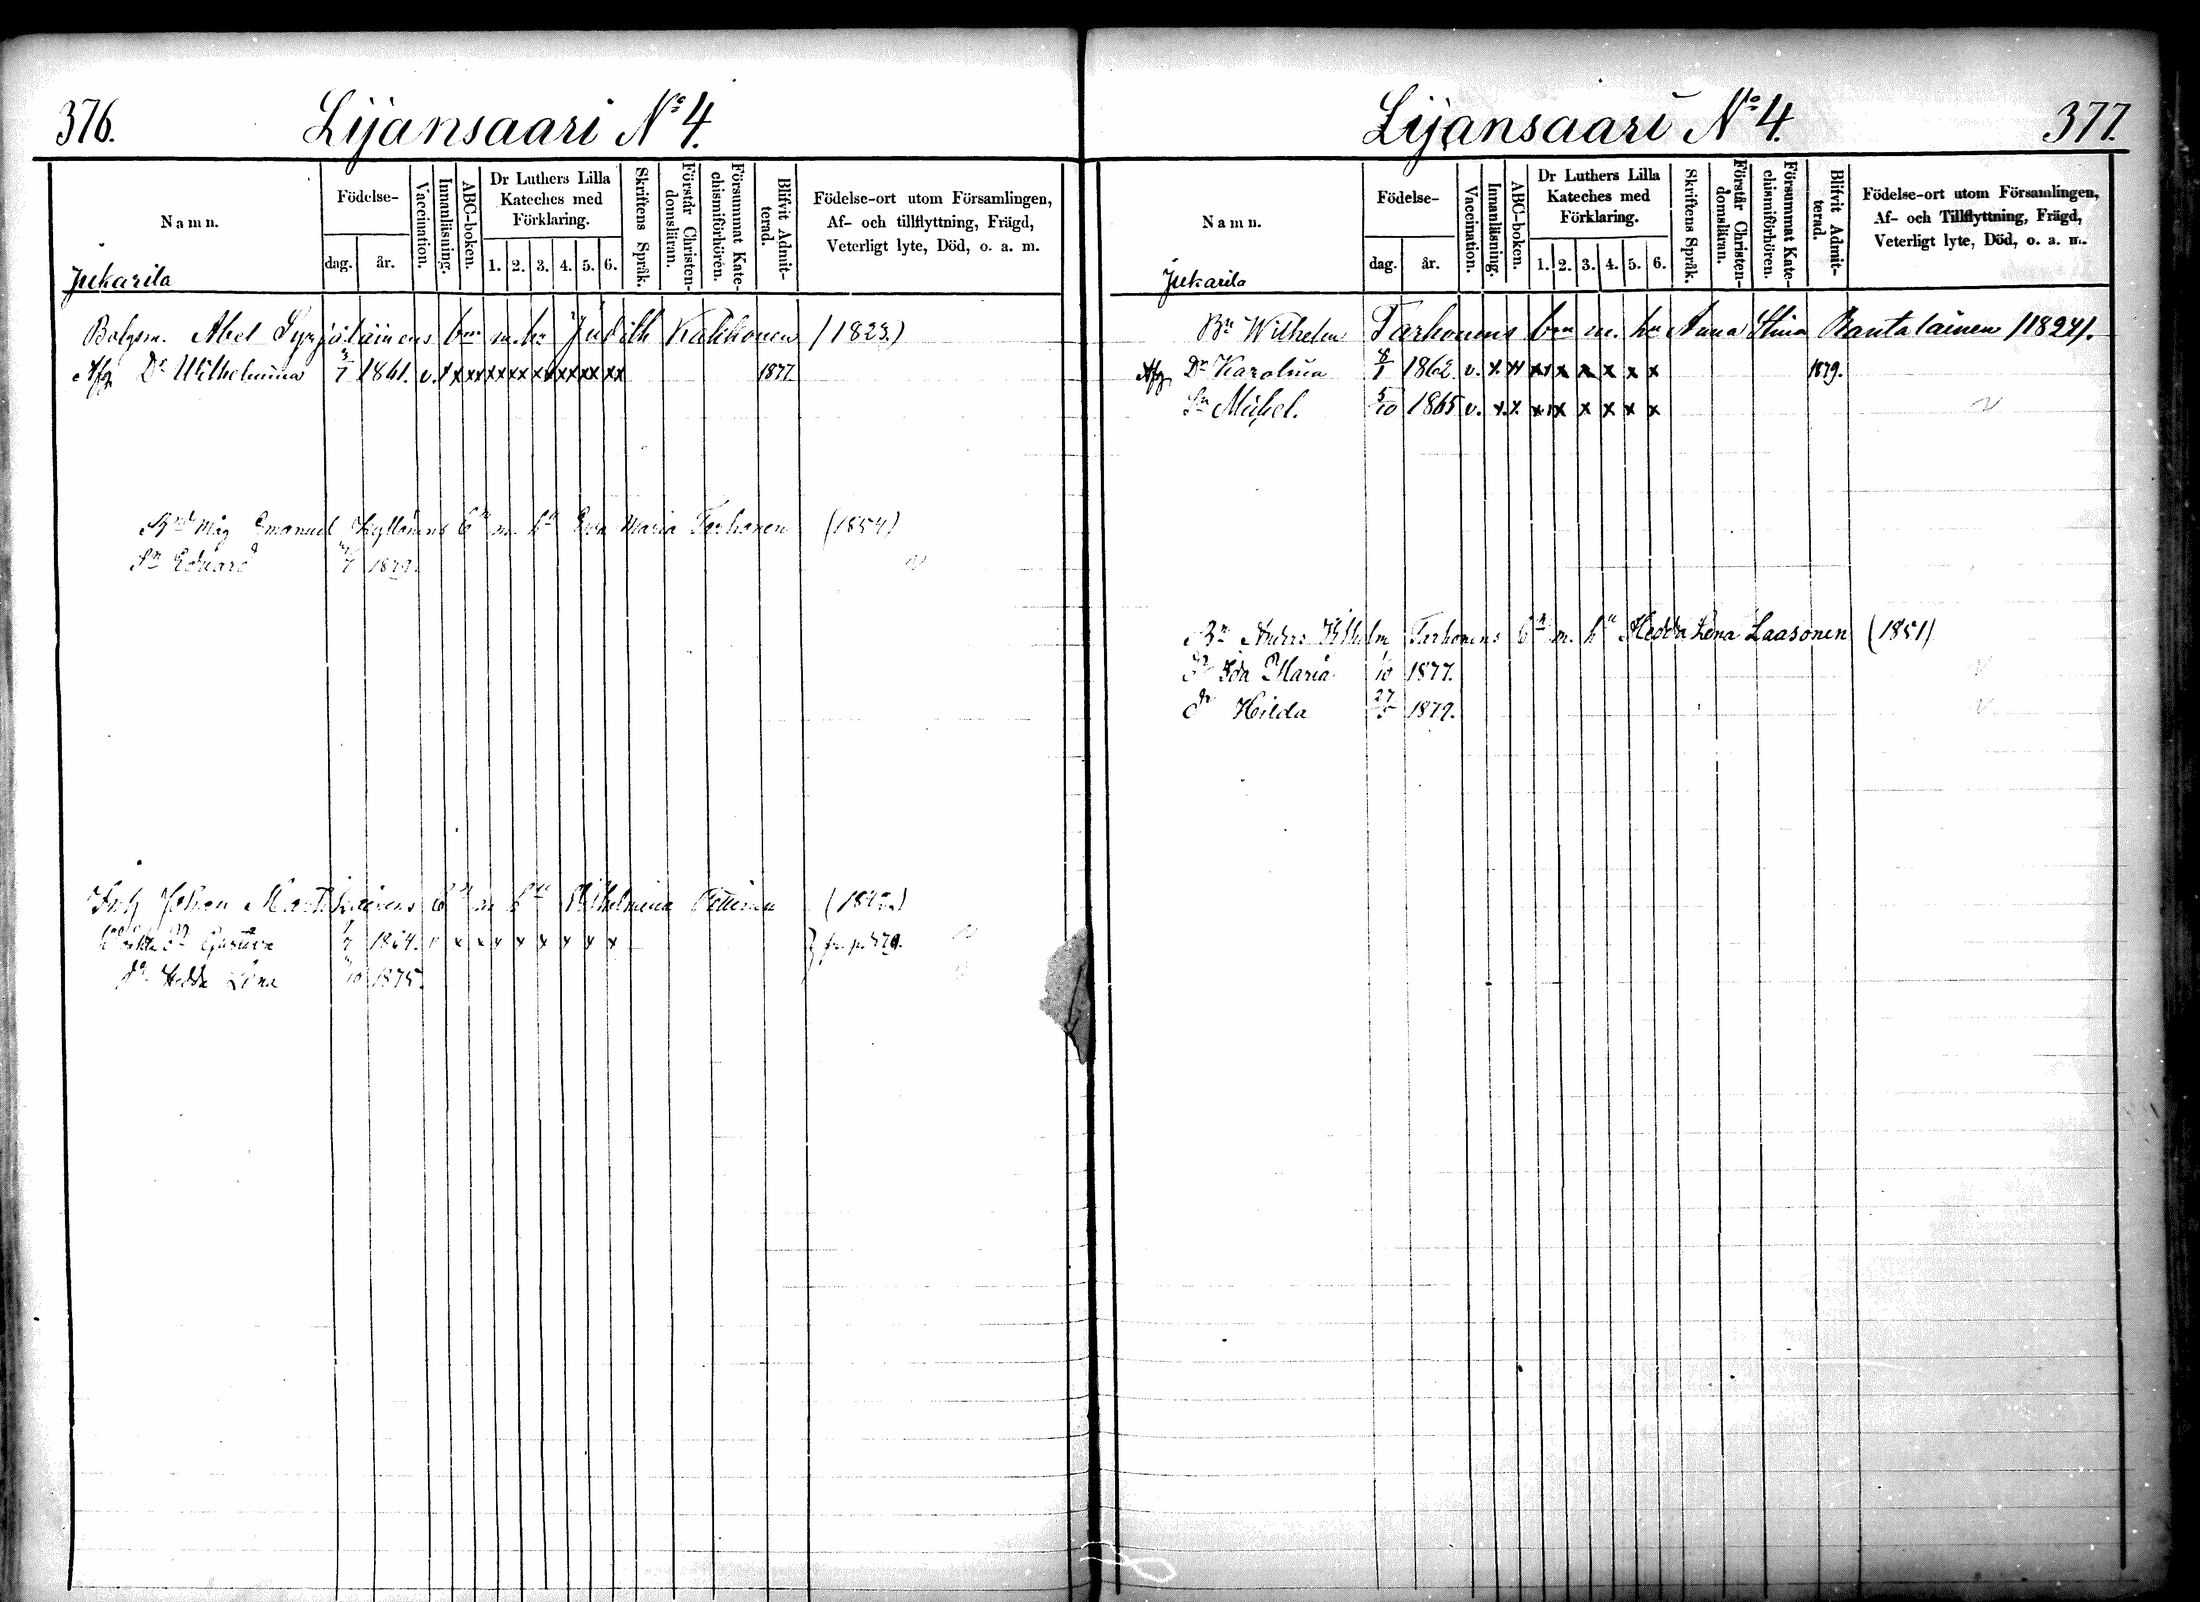 376. Lijansaari N:o 4.
Namn.
Födelse-
dag. år.
Vaccination.
Innanläsning.
ABC-boken.
Dr Luthers Lilla Kateches med Förklaring.
1. 2. 3. 4. 5. 6.
Skriftens Språk.
Förstår Christendomsläran.
Försummat Katechismiförhören.
Blifvit Admitterad.
Födelse-ort utom Församlingen,
Af- och tillflyttning, Frägd,
Veterligt lyte, Död, o. a. m.
Jukarila
Abel Syrjäläinens bn m. hu Judith Kakkonen (1823.)
Afg Dr Wilhelmina 3/7 1861. v. x xxx xx xx xx xx xx xx 1877.
Bns måg Emanuel Kyllönens bn m. hu Eva Maria Tarhonen (1854)
Sn Eduard 7 1879.
Johan Martikainens bn m hu Wilhelmina (184
Gustava 7 1864. v x x x x x x x fr. p. 479.
dr Hedda Lena 10 1875.
Lijansaari N:o 4. 377.
Namn.
Födelse-
dag. år.
Vaccination.
Innanläsning.
ABC-boken.
Dr Luthers Lilla Kateches med Förklaring.
1. 2. 3. 4. 5. 6.
Skriftens Språk.
Förstår Christendomsläran.
Försummat Katechismiförhören.
Blifvit Admitterad.
Födelse-ort utom Församlingen,
Af- och Tillflyttning, Frägd,
Veterligt lyte, Död, o. a. m.
Jukarila
Bn Wilhelm Tarhonens bn m. hu Anna Stina Rantalainen (1824).
Afg Dr Karolina 8/1 1862. v. x xx xx x x x x x 1879.
Sn Mickel. 5/10 1865 v. x x xx x x x x x
Bn Anders Wilhelm Tarhonens bn m. hu Hedda Lena Laasonen (1851)
Dr Ida Maria 1/10 1877.
dr Hilda 27/5 1879.